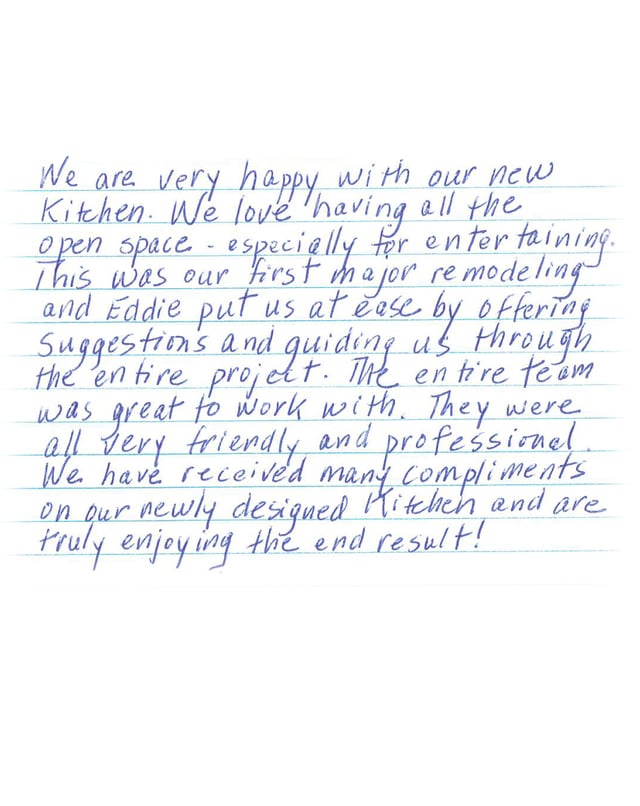 We are very happy with our new
Kitchen. We love having all the
open space - especially for entertaining.
This was our first major remodeling
and Eddie put us at ease by offering
Suggestions and guiding us through
the entire project. The entire team
was great to work with. They were
all very friendly and professional.
We have received many compliments
on our newly designed Kitchen and are
truly enjoying the end result!